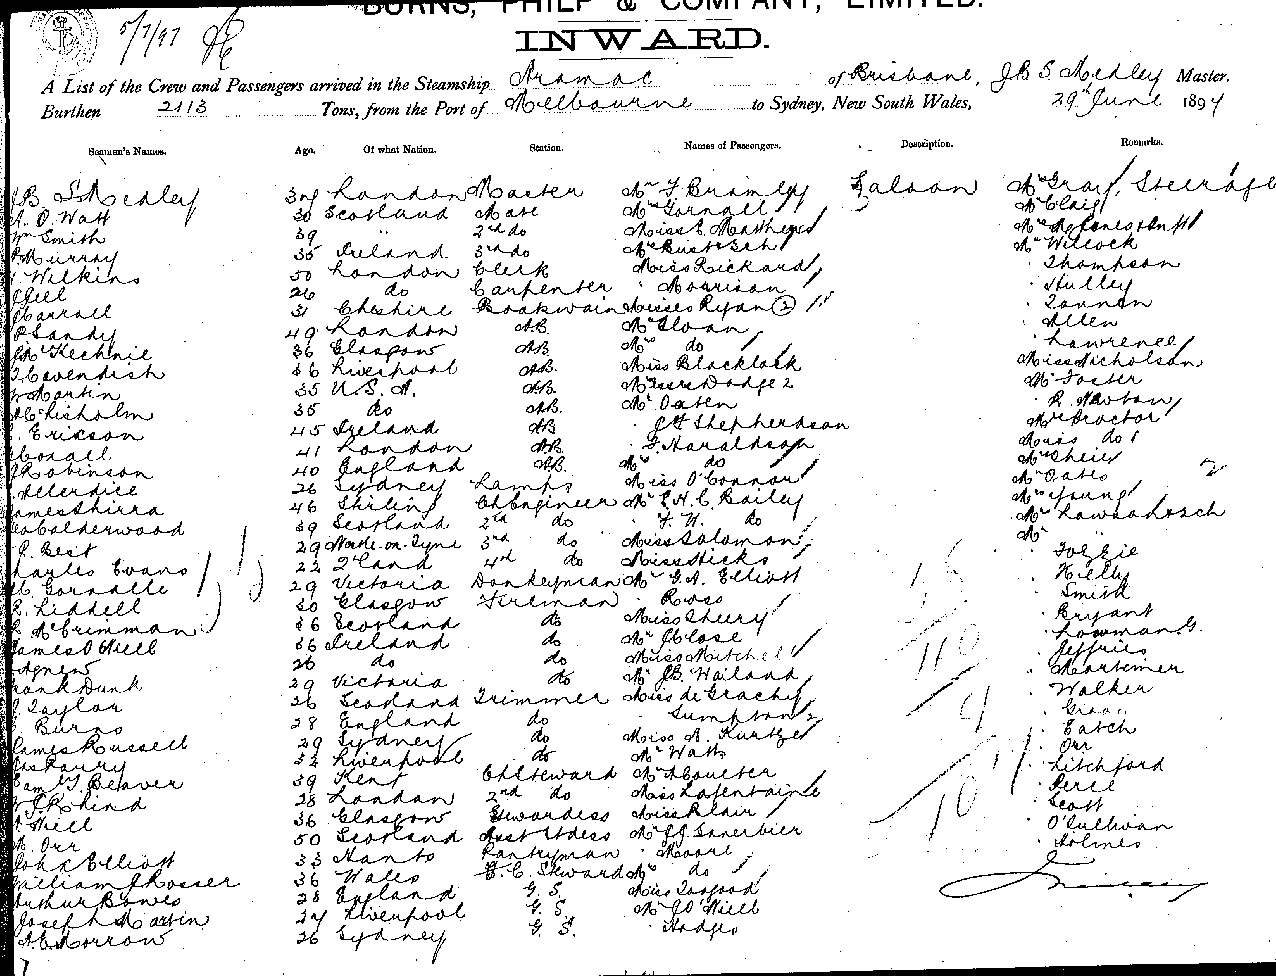 BURNS, PHILP & COMPANY, LIMITED.
5/7/97
INWARD.
A List of the Crew and Passengers arrived in the Steamship Aramac of Brisbane, J B S Medley Master,
Burthen 2113 Tons, from the Port of Melbourne to Sydney, New South Wales, 29th June 1897
Seamen's Names. Age. Of what Nation. Station. Names of Passengers. Description. Remarks.
J B S Medley London Master Mr F Bramley Saloon Mrs Gray, Steerage
A. O. Watt 30 Scotland Mate Mrs Gornall Mr Craig
Wm Smith 39 " 2nd do Miss E Mathews Mrs
Murray 35 Ireland 3rd do Mr Willcock
Wilkins 50 London Clerk Miss Rickard Thompson
J Gill 26 do Carpenter Morrison Hulley
J Carroll 31 Cheshire Boatswain Misses Ryan (2) Lannan
P Landy 49 London AB. Mr Sloan Allen
J McKechnie 36 Glasgow AB. Mrs do Lawrence
Cavendish 36 Liverpool AB. Miss Blacklock Miss Nicholson
Martin 35 U.S.A. AB. Dodge 2 Mr Foster
Chisholm 35 do AB. Mr Oaten R. Newton
Erikson 45 Ireland AB. J H Shepherdson Mrs Proctor
41 London AB. Haraldson Miss do
Robinson 40 England AB. Mrs do Mr Sheil
Allerdice 26 Sydney Lamps Miss O'Connor Mr Oates 2
James Shirra 46 Stirling Ch Engineer Mr E. H. C. Bailey Mrs Young
Calderwood 39 Scotland 2nd do F. H. do Mr
J. Best 29 Newtle-on-Tyne 3rd do Miss Salomon Mr
Charles Evans 22 Q'land 4th do Miss Hicks
Gornalle 29 Victoria Donkeyman Mr G. A. Elliott Kelly
R. Liddell 30 Glasgow Fireman Ross Smith
McCrimman 36 Scotland do Miss Sherry Bryant
James O'Neill 36 Ireland do Mr J Close Lowman G.
Agnew 26 do do Miss Mitchell Jeffries
Frank Dunk 29 Victoria do Mr J B. Wailand Mortimer
J Taylor 26 Scotland Trimmer Miss de Grachy Walker
Burns 28 England do Sumpton 2
James Russell 29 Sydney do Miss A. Kurtze Eatch
32 Liverpool do Mr Watts Orr
G Beaver 39 Kent Ch Steward Mr A Coulter Litchford
J Rhind 28 London 2nd do Miss Lafontaine
Hill 36 Glasgow Stewardess Miss Blair Scott
M. Orr 50 Scotland Asst Stdess Mr J J Sanerbier O'Sullivan
John Elliott 33 Hants Pantryman Moore Holmes
William J Rosser 36 Wales F. C. Steward Mrs do
Arthur Bowes 28 England G. S. Miss Toogood
Joseph Martin 27 Liverpool G. S. Mr J O'Neill
A C Morrow 26 Sydney G. S. Hodges